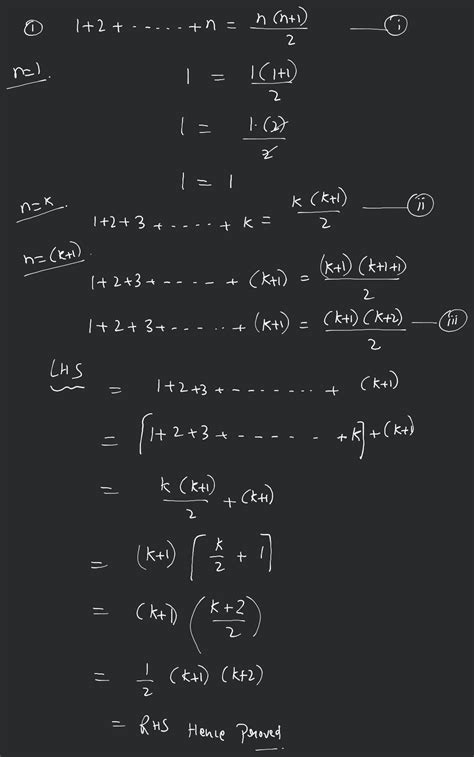 ① 1+2+ ..... +n = n(n+1)/2 —— (i)
n=1. 1 = 1(1+1)/2
1 = 1·(2)/2
1 = 1
n=k. 1+2+3+ ..... + k = k(k+1)/2 —— (ii)
n=(k+1). 1+2+3+ ----- + (k+1) = (k+1)(k+1+1)/2
1+2+3+ ...... + (k+1) = (k+1)(k+2)/2 —— (iii)
LHS = 1+2+3+ ------- + (k+1)
= [1+2+3+ ------ +k]+(k+1)
= k(k+1)/2 + (k+1)
= (k+1) [k/2 + 1]
= (k+1) (k+2/2)
= 1/2 (k+1) (k+2)
= RHS Hence Proved